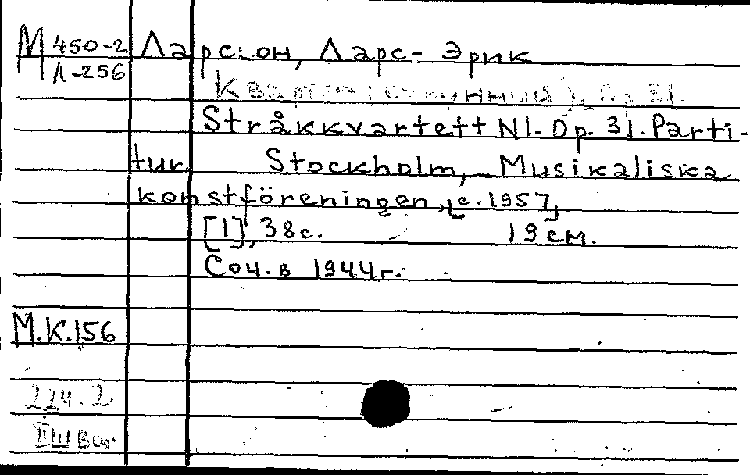 М 450-2 Ларссон, Ларс-Эрик
Л-256
Квартет струнный
Stråkkvartett N1. Op. 31. Parti-
tur. Stockholm, Musikaliska
konstföreningen, [c. 1957]
[1], 38 с. 19 см.
Соч. в 1944 г.
М.К.156
224.2